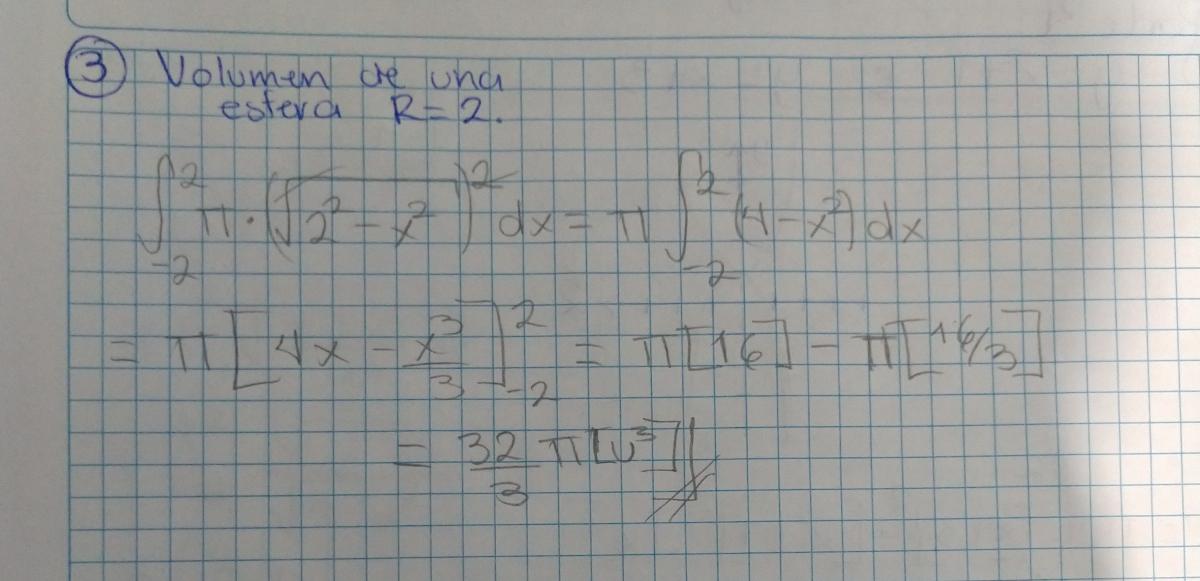 ③ Volumen de una
esfera R=2.
∫₋₂² π·(√(2²-x²))² dx = π ∫₋₂² (4-x²) dx
= π [4x - x³/3]₋₂² = π[16] - π[16/3]
= 32/3 π [u³]